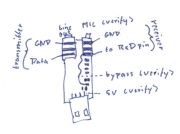 bias MIC (verify)
GND GND
Data to RxD pin
transmitter
receiver
bypass (verify)
5V (verify)